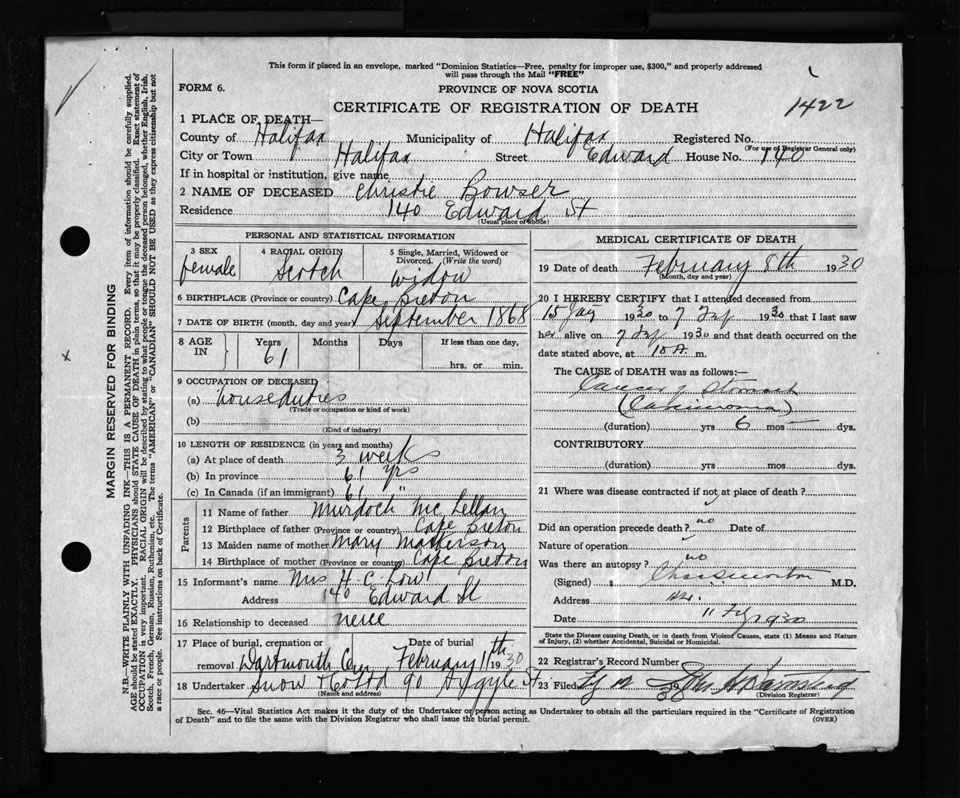 This form if placed in an envelope, marked "Dominion Statistics—Free, penalty for improper use, $300," and properly addressed
will pass through the Mail "FREE"
FORM 6.
PROVINCE OF NOVA SCOTIA
CERTIFICATE OF REGISTRATION OF DEATH
1422
1 PLACE OF DEATH—
County of Halifax Municipality of Halifax Registered No.
(For use of Registrar General only)
City or Town Halifax Street Edward House No. 140
If in hospital or institution, give name
2 NAME OF DECEASED Christie Bowser
Residence 140 Edward St
(Usual place of abode)
PERSONAL AND STATISTICAL INFORMATION
3 SEX 4 RACIAL ORIGIN 5 Single, Married, Widowed or
Divorced. (Write the word)
female Scotch widow
6 BIRTHPLACE (Province or country) Cape Breton
7 DATE OF BIRTH (month, day and year) September 1868
8 AGE IN Years Months Days If less than one day,
61 hrs. or min.
9 OCCUPATION OF DECEASED
(a) houseduties
(Trade or occupation or kind of work)
(b)
(Kind of industry)
10 LENGTH OF RESIDENCE (in years and months)
(a) At place of death 3 weeks
(b) In province 61 yrs
(c) In Canada (if an immigrant) 61 "
Parents
11 Name of father Murdoch McLellan
12 Birthplace of father (Province or country) Cape Breton
13 Maiden name of mother Mary Matterson
14 Birthplace of mother (Province or country) Cape Breton
15 Informant's name Mrs H. C. Low
Address 140 Edward St
16 Relationship to deceased neice
17 Place of burial, cremation or Date of burial
removal Dartmouth Cem February 11th 1930
18 Undertaker Snow & Co Ltd 90 Argyle St.
(Name and address)
MEDICAL CERTIFICATE OF DEATH
19 Date of death February 8th 1930
(Month, day and year)
20 I HEREBY CERTIFY that I attended deceased from
15 Jany 1930 to 7 Feb 1930 that I last saw
her alive on 7 Feb 1930 and that death occurred on the
date stated above, at 10 A. m.
The CAUSE of DEATH was as follows:—
Cancer of Stomach
(Carcinoma)
(duration) yrs 6 mos — dys.
CONTRIBUTORY
(duration) yrs mos dys.
21 Where was disease contracted if not at place of death?
Did an operation precede death? no Date of
Nature of operation
Was there an autopsy? no
(Signed) M.D.
Address Hx.
Date 11 Feb 1930
State the Disease causing Death, or in death from Violent Causes, state (1) Means and Nature
of Injury, (2) whether Accidental, Suicidal or Homicidal.
22 Registrar's Record Number
23 Filed
(Division Registrar)
Sec. 46—Vital Statistics Act makes it the duty of the Undertaker or person acting as Undertaker to obtain all the particulars required in the "Certificate of Registration
of Death" and to file the same with the Division Registrar who shall issue the burial permit.
(OVER)
MARGIN RESERVED FOR BINDING
N.B.—WRITE PLAINLY WITH UNFADING INK—THIS IS A PERMANENT RECORD. Every item of information should be carefully supplied.
AGE should be stated EXACTLY. PHYSICIANS should STATE CAUSE OF DEATH in plain terms, so that it may be properly classified. Exact statement of
OCCUPATION is very important. RACIAL ORIGIN will be described by stating to what people or tongue the deceased person belonged, whether English, Irish,
Scotch, French, German, Russian, Ruthenian, etc. The terms "AMERICAN" or "CANADIAN" SHOULD NOT BE USED as they express citizenship but not
a race or people. See instructions on back of Certificate.